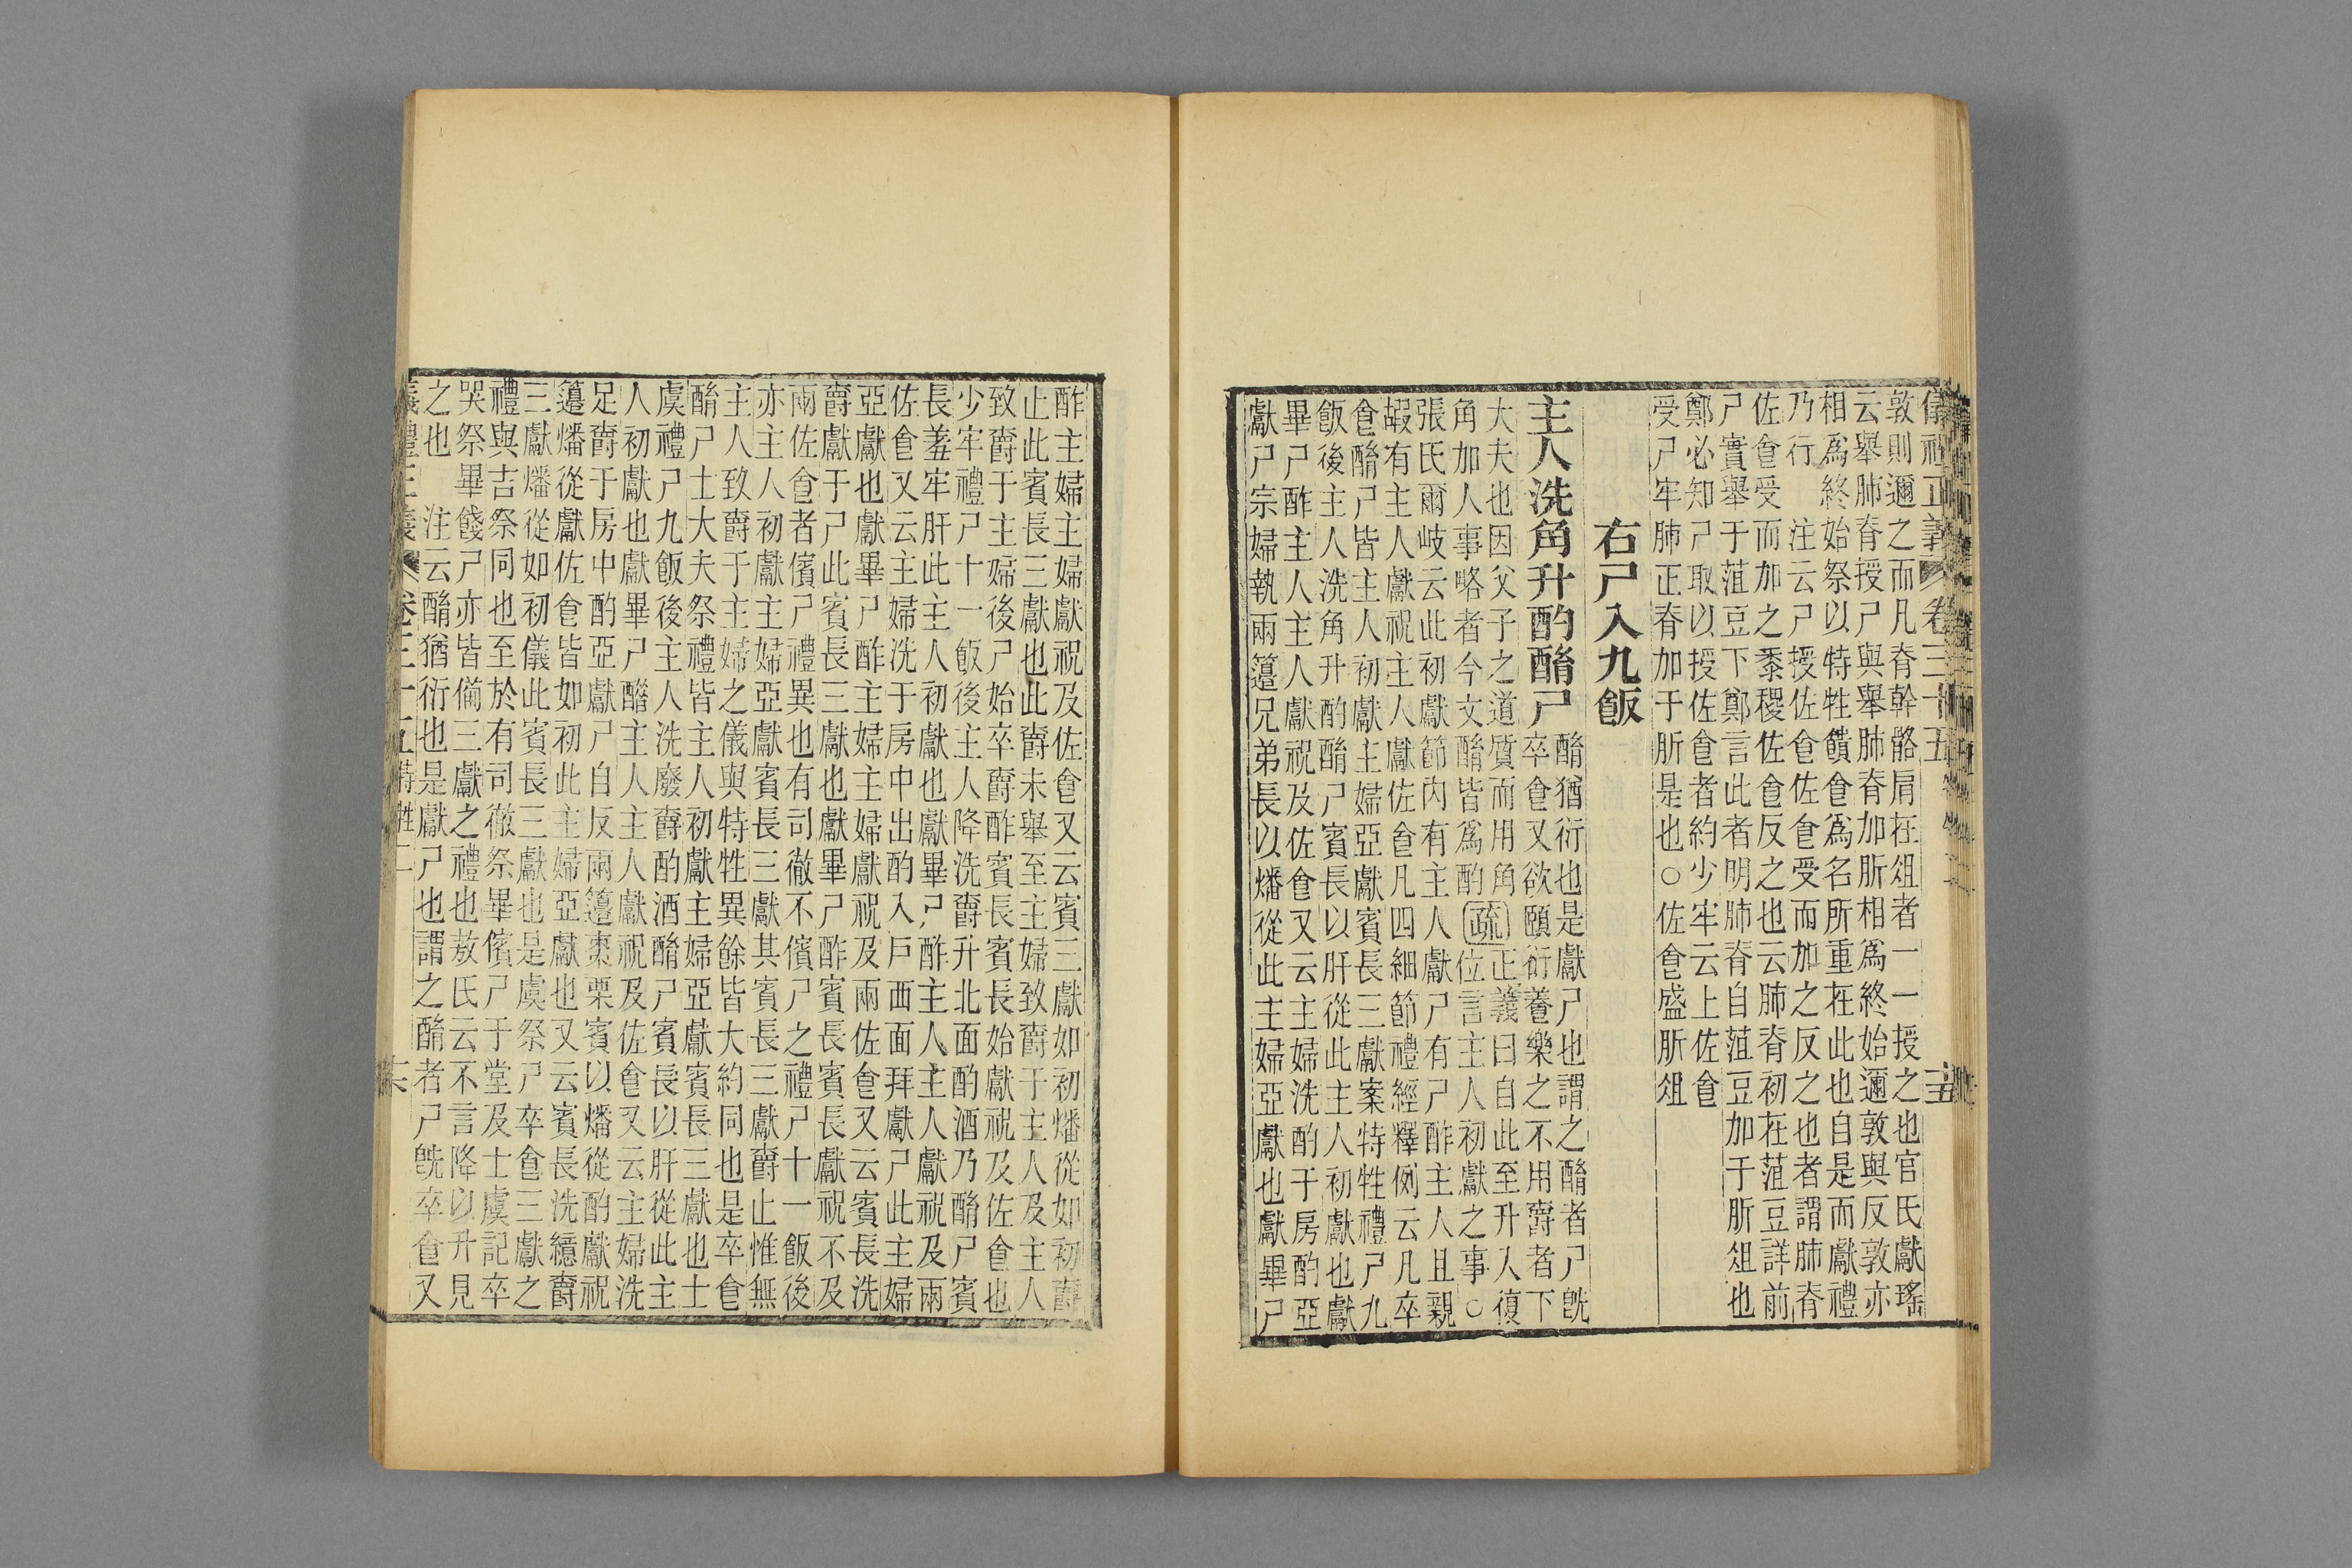 儀禮正義 卷三十五
敦則邇之而凡脊幹骼肩在俎者一一授之也官氏獻瑤
云舉肺脊授尸與舉肺脊加肵相爲終始邇敦與反敦亦
相爲終始祭以特牲饋食爲名所重在此也自是而獻禮
乃行 注云尸授佐食佐食受而加之反之也者謂肺脊
佐食受而加之黍稷佐食反之也云肺脊初在菹豆詳前
尸實舉于菹豆下鄭言此者明肺脊自菹豆加于肵俎也
鄭必知尸取以授佐食者約少牢云上佐食
受尸牢肺正脊加于肵是也○佐食盛肵俎
右尸入九飯
主人洗角升酌酳尸
酳猶衍也是獻尸也謂之酳者尸旣
卒食又欲頤衍養樂之不用爵者下
大夫也因父子之道質而用角
角加人事略者今文酳皆爲酌
疏
正義曰自此至升入復
位言主人初獻之事○
張氏爾岐云此初獻節內有主人獻尸有尸酢主人且親
嘏有主人獻祝主人獻佐食凡四細節禮經釋例云凡卒
食酳尸皆主人初獻主婦亞獻賓長三獻案特牲禮尸九
飯後主人洗角升酌酳尸賓長以肝從此主人初獻也獻
畢尸酢主人主人獻祝及佐食又云主婦洗酌于房酌亞
獻尸宗婦執兩籩兄弟長以燔從此主婦亞獻也獻畢尸
酢主婦主婦獻祝及佐食又云賓三獻如初燔從如初爵
止此賓長三獻也此爵未舉至主婦致爵于主人及主人
致爵于主婦後尸始卒爵酢賓長賓長始獻祝及佐食也
少牢禮尸十一飯後主人降洗爵升北面酌酒乃酳尸賓
長羞牢肝此主人初獻也獻畢尸酢主人主人獻祝及兩
佐食又云主婦洗于房中出酌入戶西面拜獻尸此主婦
亞獻也獻畢尸酢主婦主婦獻祝及兩佐食又云賓長洗
爵獻于尸此賓長三獻也獻畢尸酢賓長賓長獻祝不及
兩佐食者儐尸禮異也有司徹不儐尸之禮尸十一飯後
亦主人初獻主婦亞獻賓長三獻其賓長三獻爵止惟無
主人致爵于主婦之儀與特牲異餘皆大約同也是卒食
酳尸士大夫祭禮皆主人初獻主婦亞獻賓長三獻也士
虞禮尸九飯後主人洗廢爵酌酒酳尸賓長以肝從此主
人初獻也獻畢尸醋主人主人獻祝及佐食又云主婦洗
足爵于房中酌亞獻尸自反兩籩棗栗賓以燔從酌獻祝
籩燔從獻佐食皆如初此主婦亞獻也又云賓長洗繶爵
三獻燔從如初儀此賓長三獻也是虞祭尸卒食三獻之
禮與吉祭同也至於有司徹祭畢儐尸于堂及士虞記卒
哭祭畢餞尸亦皆備三獻之禮也敖氏云不言降以升見
之也 注云酳猶衍也是獻尸也謂之酳者尸旣卒食又